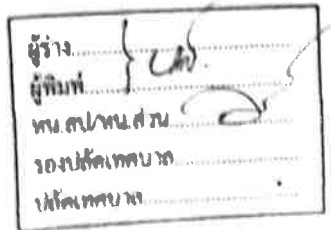 ผู้ร่าง
ผู้พิมพ์
หน.สป/หน.ส่วน
รองปลัดเทศบาล
ปลัดเทศบาล